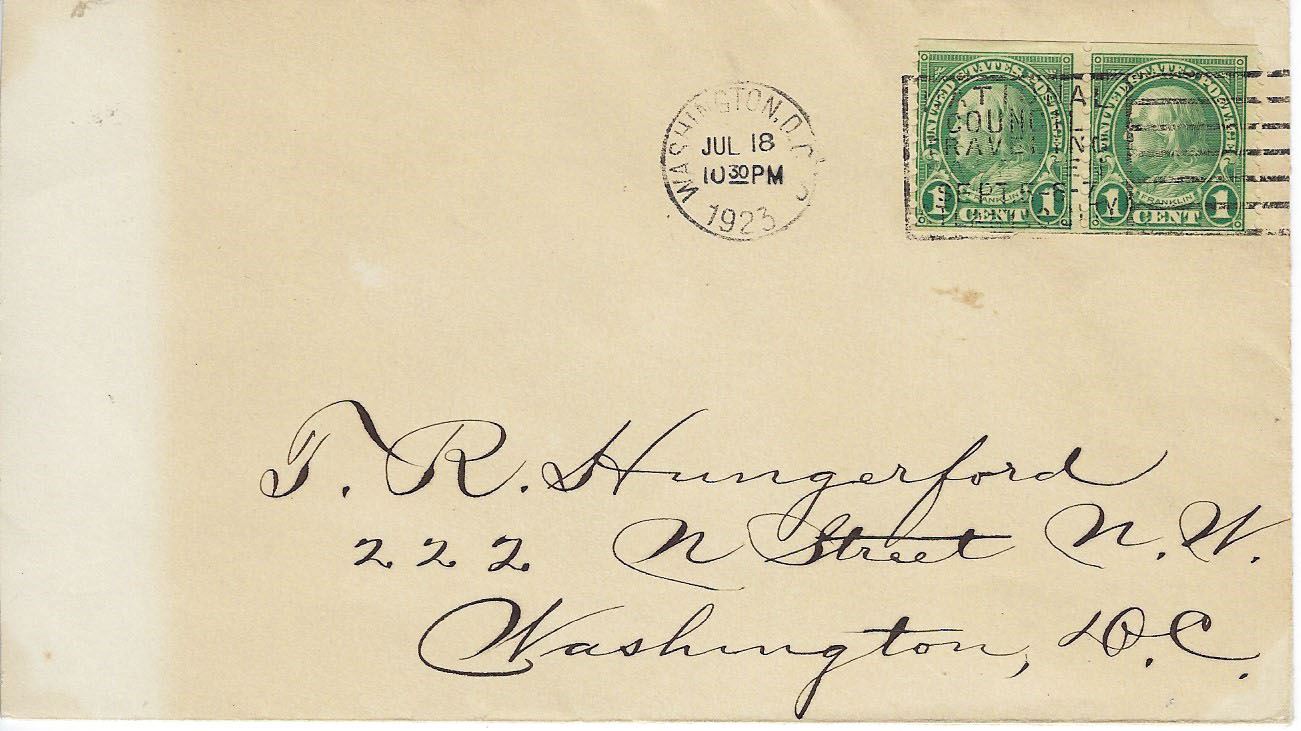 WASHINGTON, D.C.
JUL 18
10 30 PM
1923
UNITED STATES POSTAGE
FRANKLIN
1 CENT 1
UNITED STATES POSTAGE
FRANKLIN
1 CENT 1
T. R. Hungerford
222 N Street N. W.
Washington, D. C.